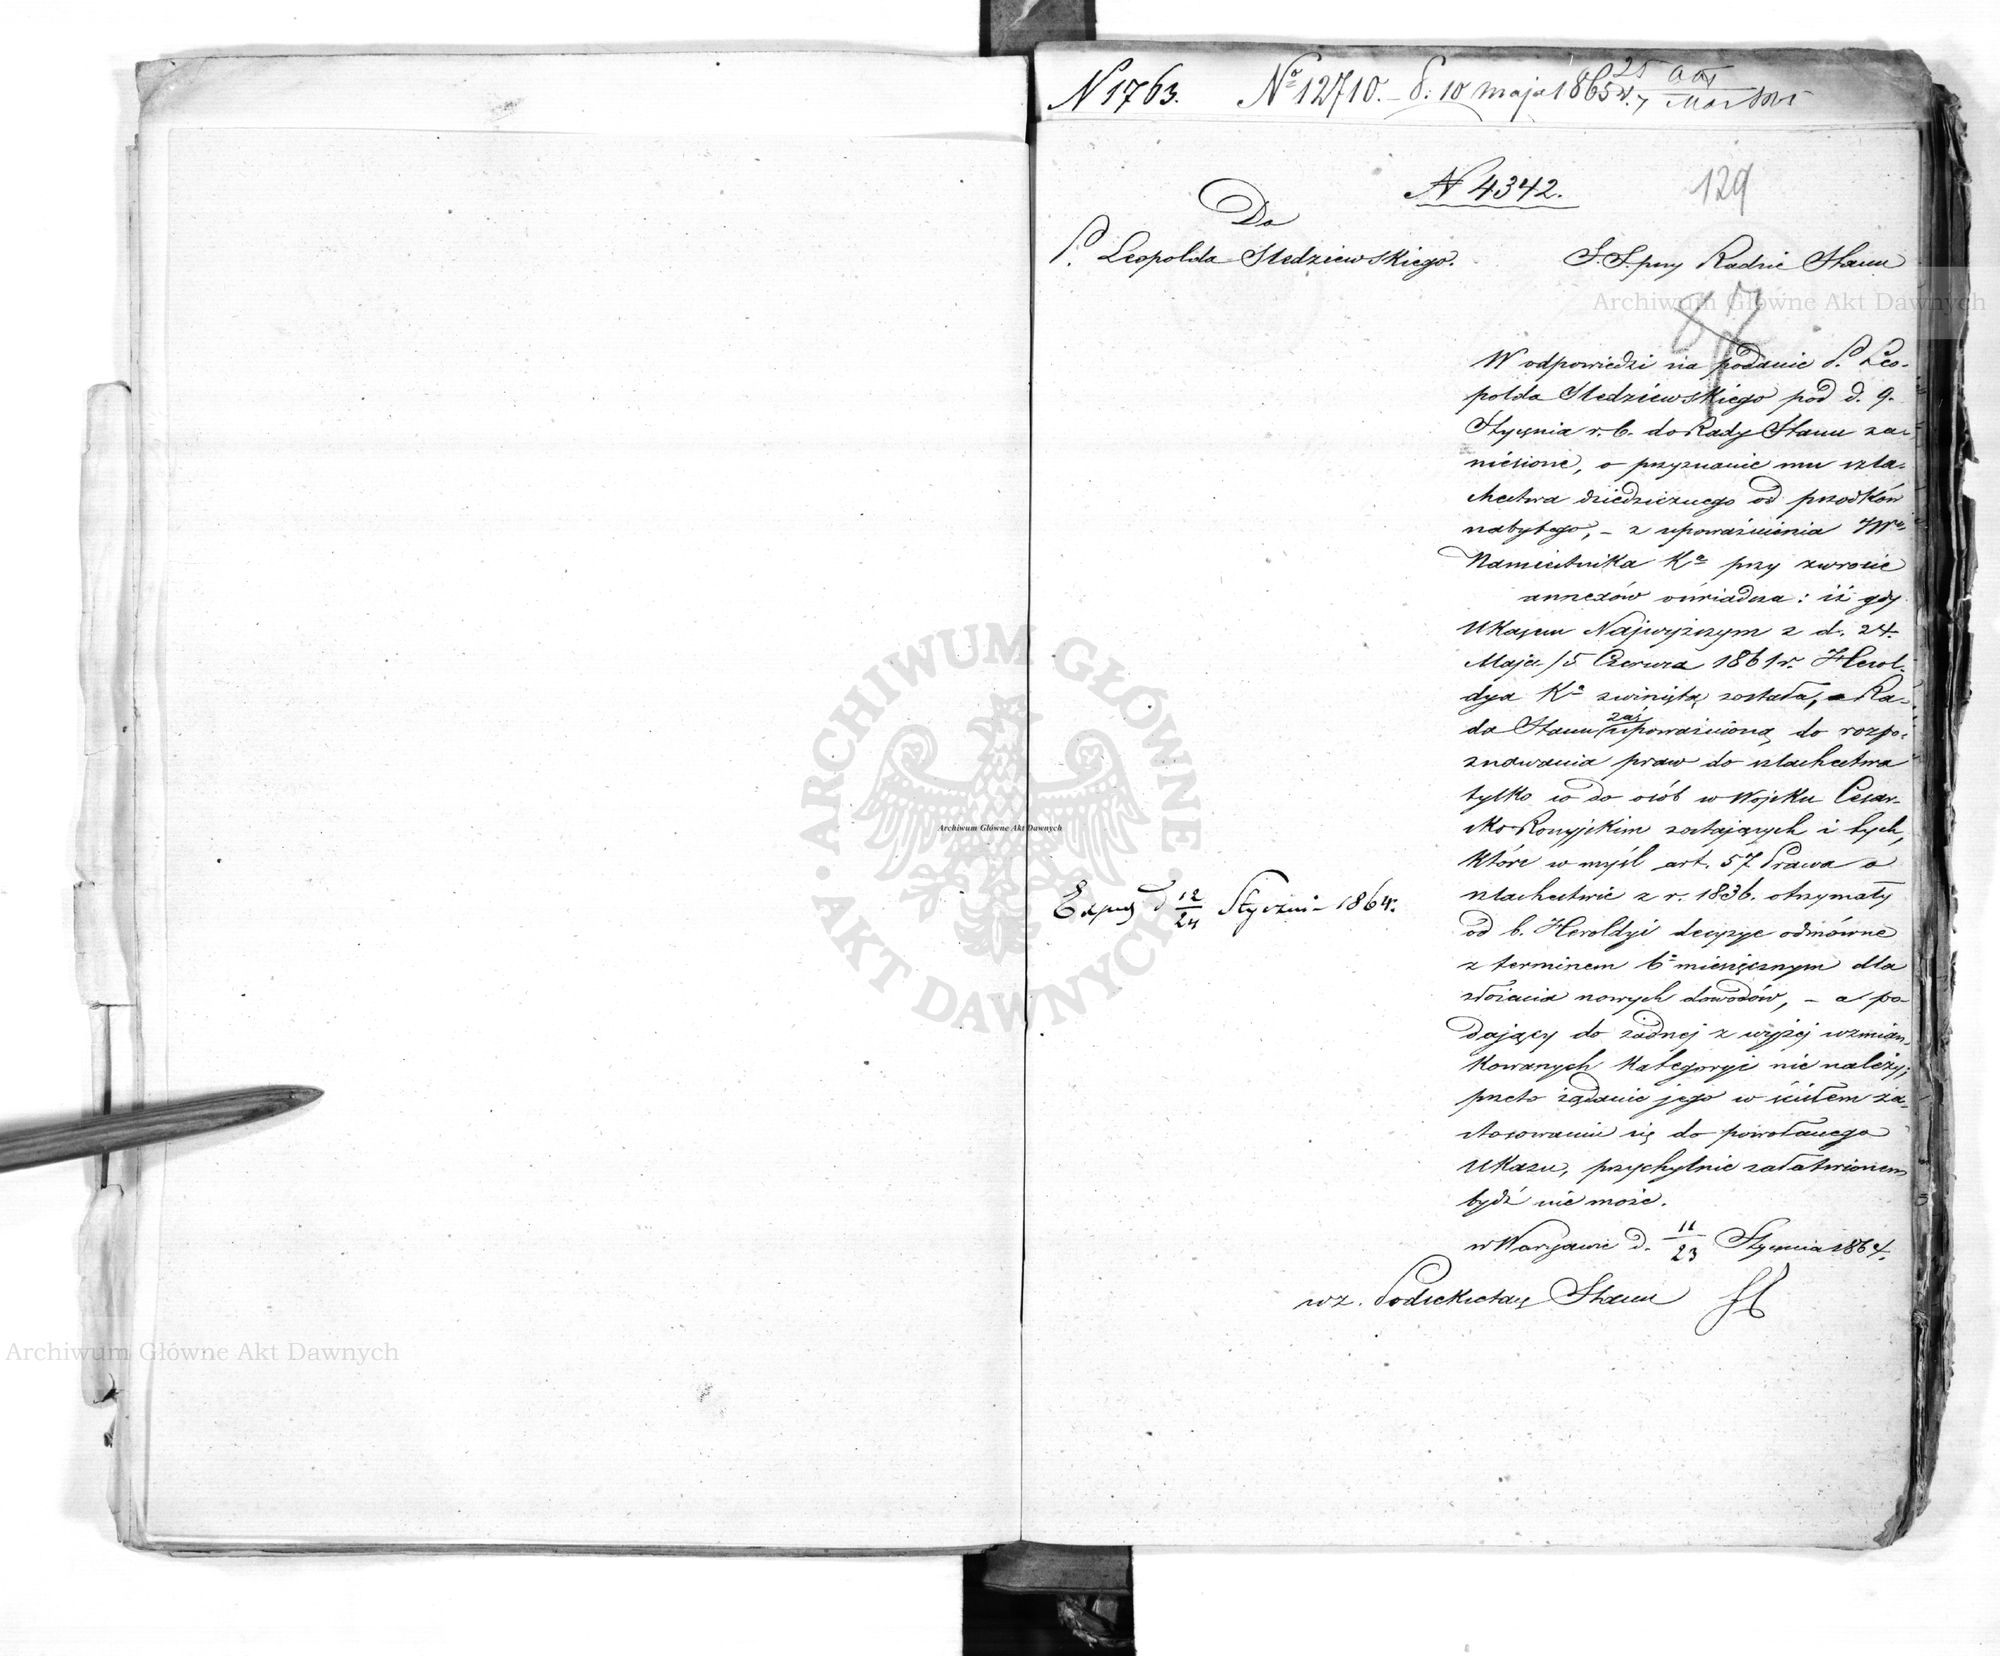 N 1763. Nº 12710. – d: 10 maja 1865 r. 25
N 4342.
129
Do
P. Leopolda Sledziewskiego.
S. S. przy Radzie Stanu
W odpowiedzi na podanie P. Leo-
polda Sledziewskiego pod d. 9.
Stycznia r. b. do Rady Stanu za-
niesione, o przyznanie mu szla-
chectwa dziedzicznego od przodków
nabytego, – z upoważnienia JW
Namiestnika Kª przy zwrocie
annexów oświadcza: iż gdy
Ukazem Najwyższym z d. 24.
Maja /5 Czerwca 1861 r. Herol-
dya Kª zwiniętą została, a Ra-
da Stanu zaś upoważnioną do rozpo-
znawania praw do szlachectwa
tylko co do osób w Wojsku Cesar-
sko Rossyjskim zostających i tych,
które w myśl art. 57 Prawa o
szlachectwie z r. 1836. otrzymały
od b. Heroldyi decyzye odmówne
z terminem 6º miesięcznym dla
złożenia nowych dowodów, – a po-
dający do żadnej z wyżej wzmian-
kowanych kategoryi nie należy;
przeto żądanie jego w ścisłem za-
stosowaniu się do powołanego
Ukazu, przychylnie załatwionem
bydź nie może.
w Warszawie d. 11/23 Stycznia 1864.
wz. Podsekretarz Stanu
Exped d 12/24 Stycznia 1864.
Archiwum Główne Akt Dawnych
ARCHIWUM GŁÓWNE • AKT DAWNYCH •
Archiwum Główne Akt Dawnych
Archiwum Główne Akt Dawnych